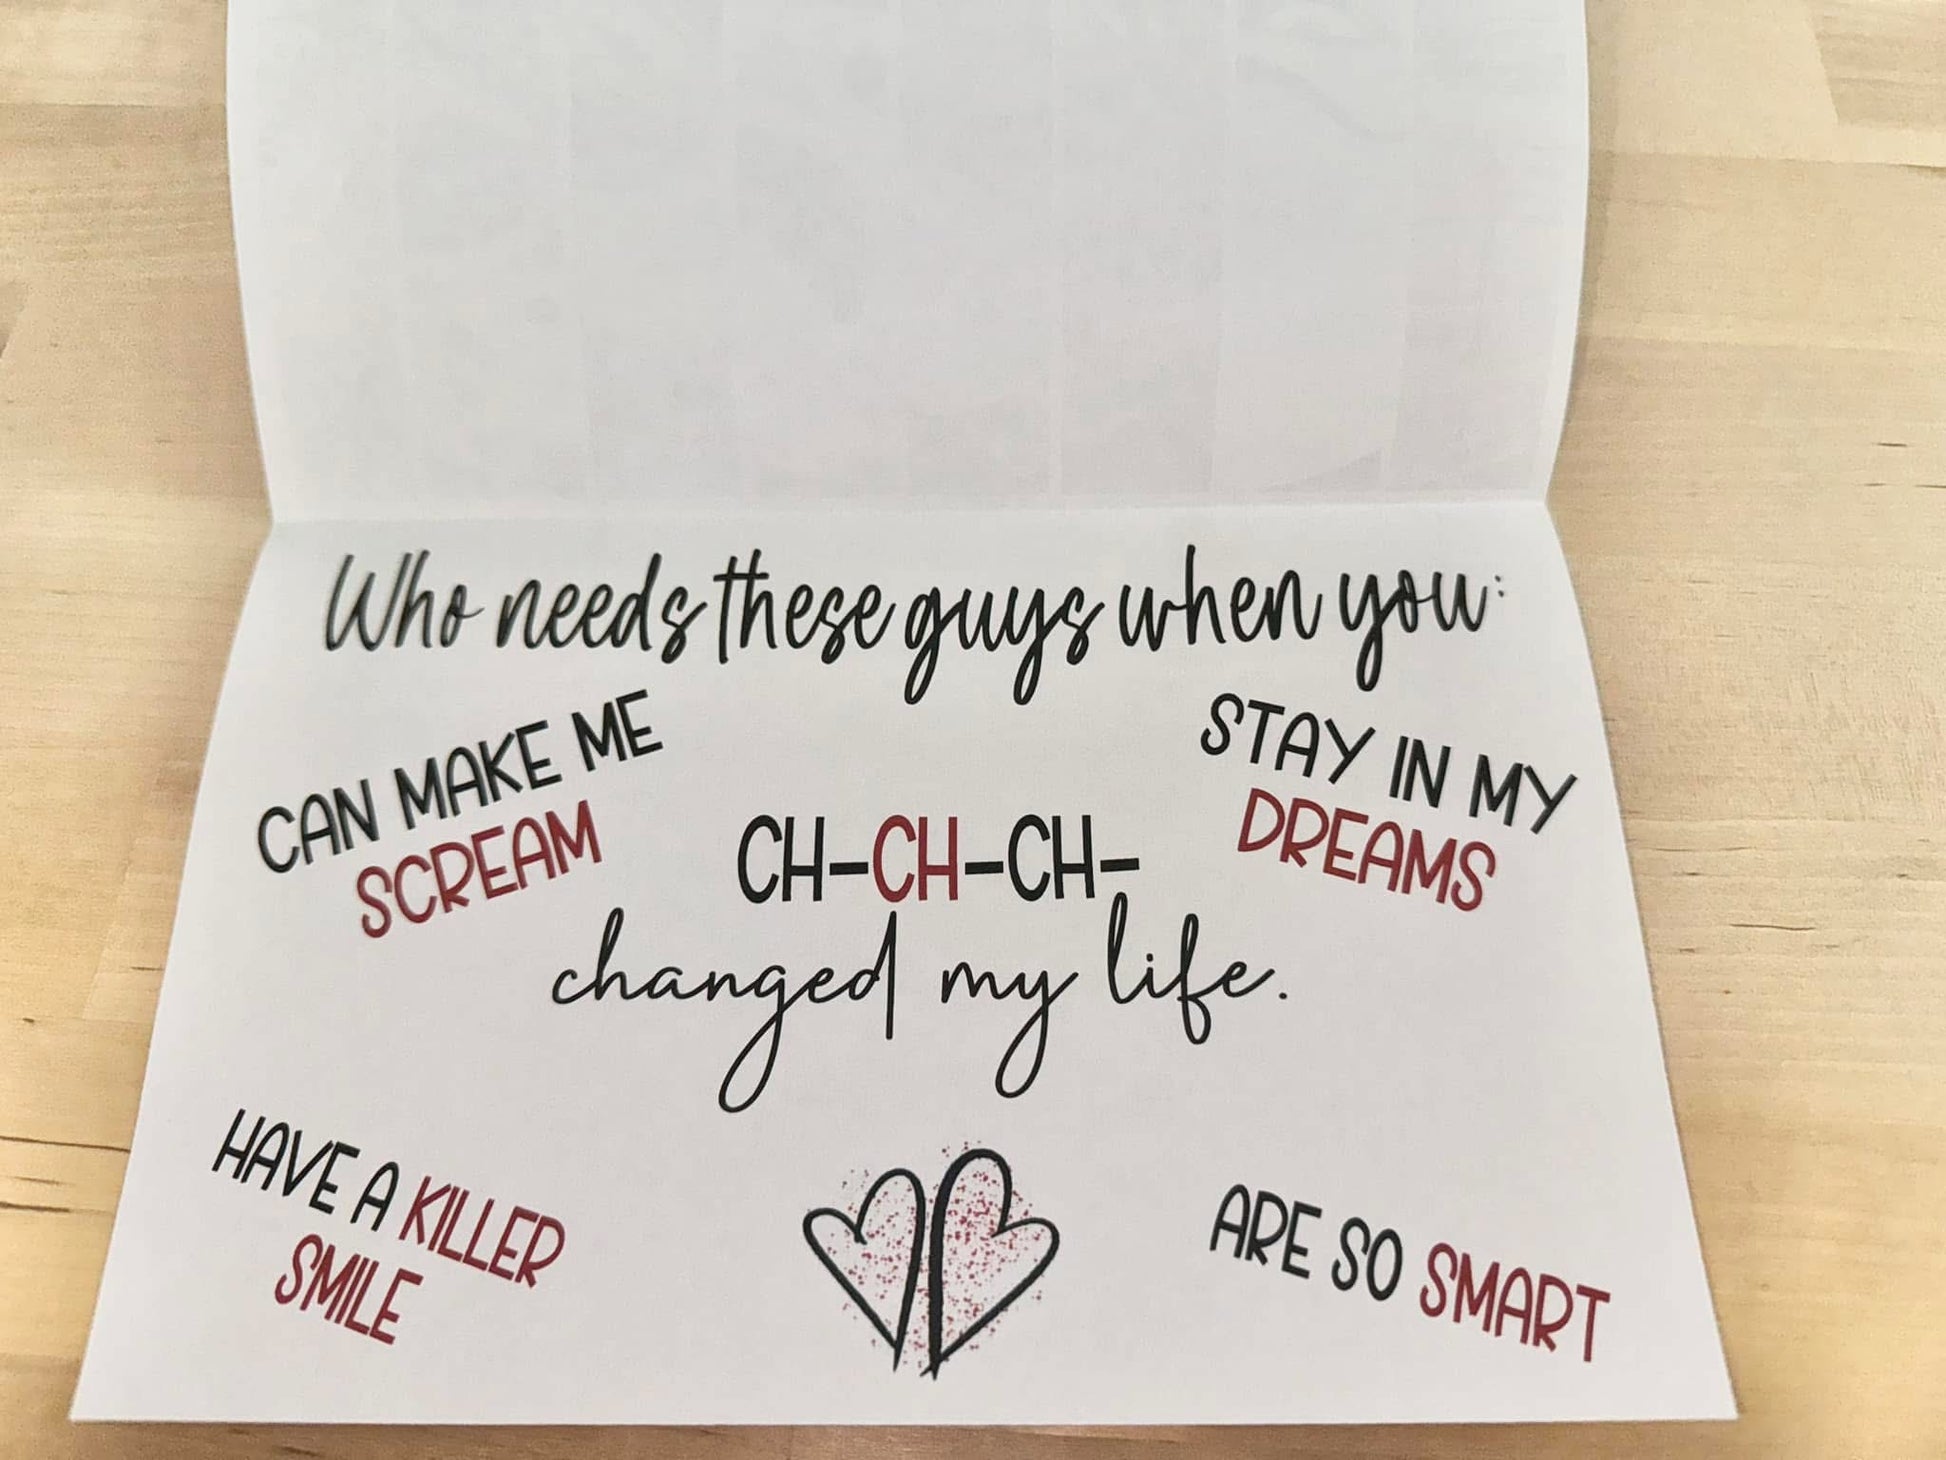 Who needs these guys when you:
CAN MAKE ME
SCREAM
STAY IN MY
DREAMS
CH-CH-CH-
changed my life.
HAVE A KILLER
SMILE
ARE SO SMART